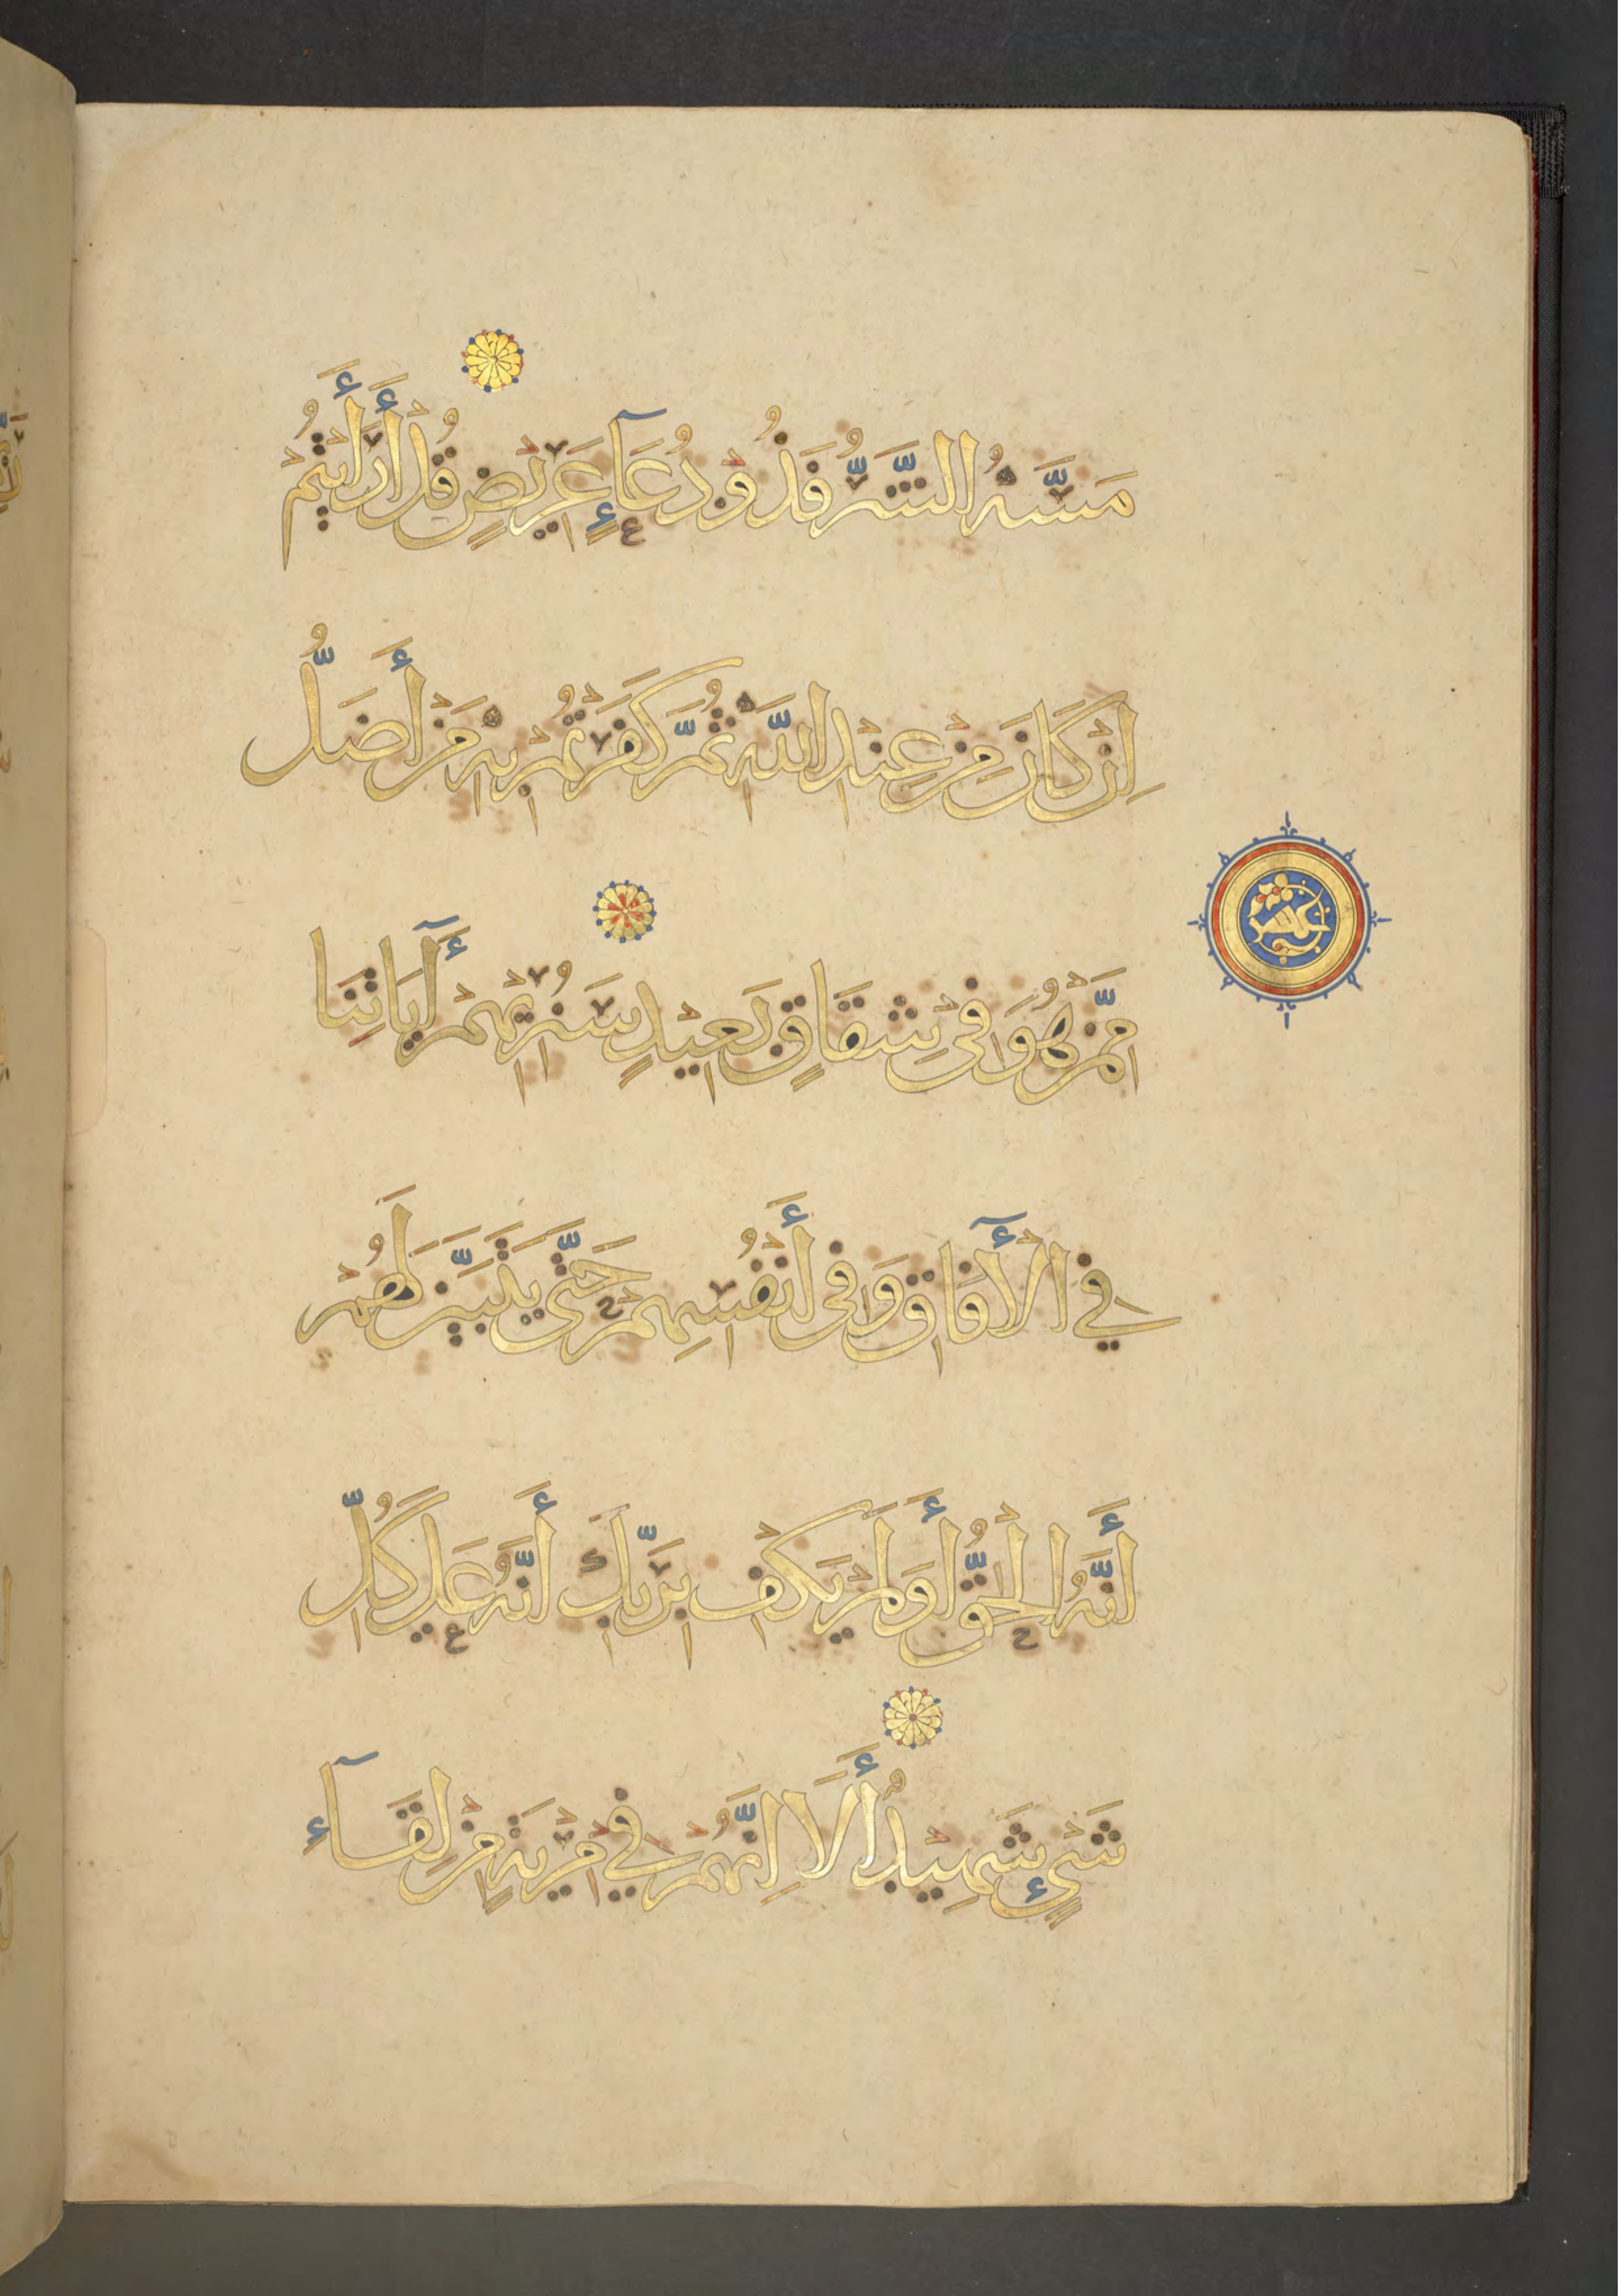 مَسَّهُ الشَّرُّ فَذُو دُعَآءٍ عَرِيضٍ قُلْ أَرَأَيْتُمْ
إِنْ كَانَ مِنْ عِنْدِ اللَّهِ ثُمَّ كَفَرْتُمْ بِهِ مَنْ أَضَلُّ
مِمَّنْ هُوَ فِي شِقَاقٍ بَعِيدٍ سَنُرِيهِمْ آيَاتِنَا
فِي الْآفَاقِ وَفِي أَنْفُسِهِمْ حَتَّى يَتَبَيَّنَ لَهُمْ
أَنَّهُ الْحَقُّ أَوَلَمْ يَكْفِ بِرَبِّكَ أَنَّهُ عَلَى كُلِّ
شَيْءٍ شَهِيدٌ أَلَا إِنَّهُمْ فِي مِرْيَةٍ مِنْ لِقَآءِ